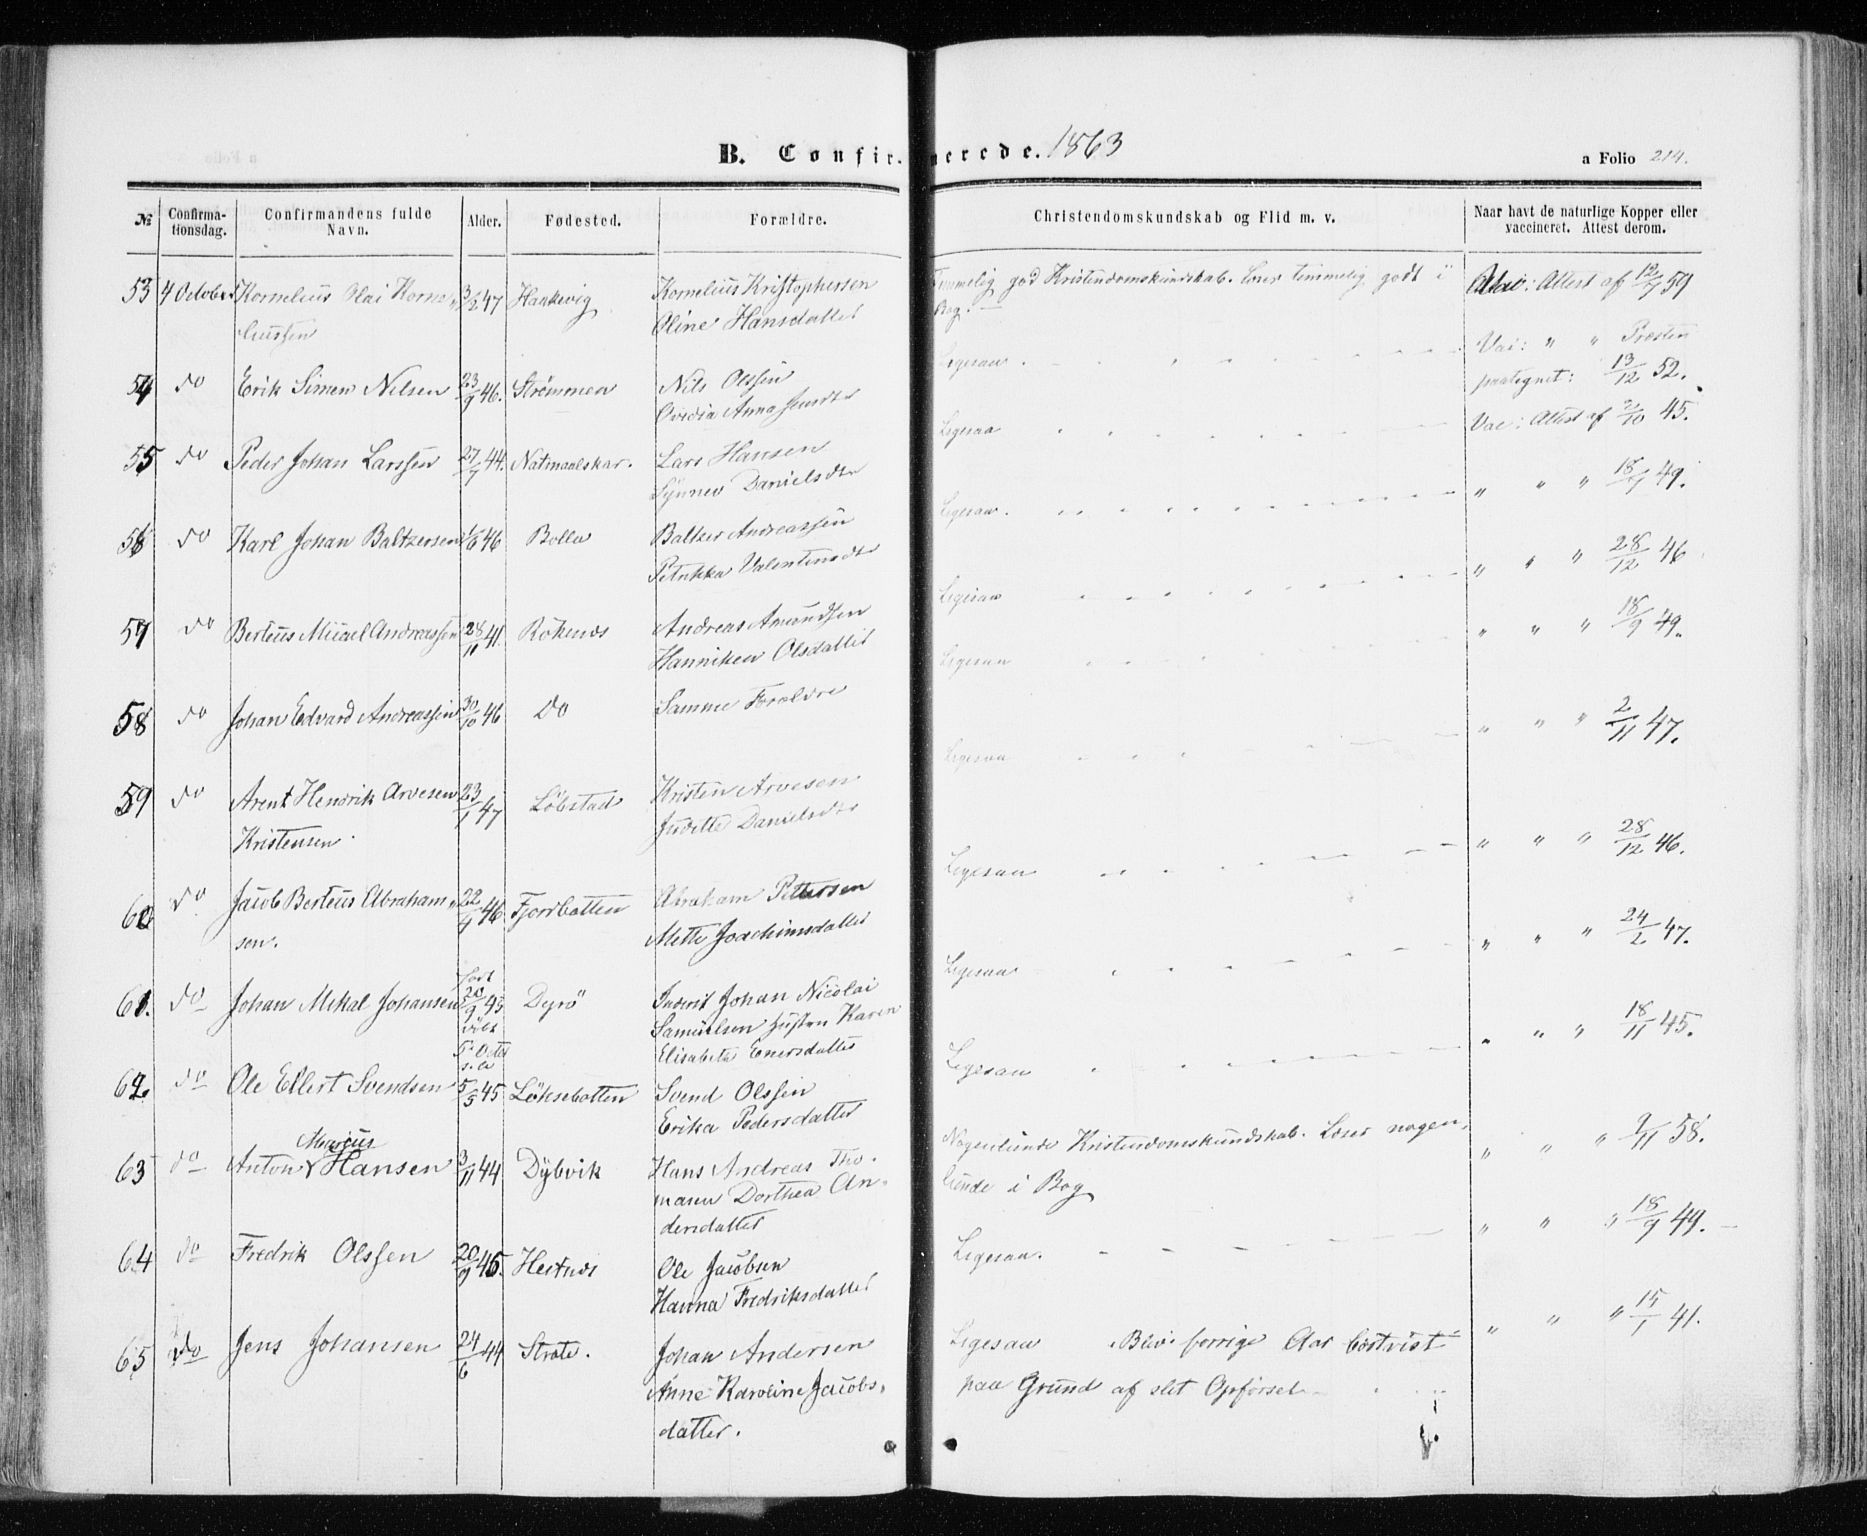 B. Confirmerede. 1863
a Folio 214.
№ Confirma-tionsdag. Confirmandens fulde Navn. Alder. Fødested. Forældre. Christendomskundskab og Flid m. v. Naar havt de naturlige Kopper eller vaccineret. Attest derom.
53 4 October Kornelius Olai Korne- 3/2 47 Haakevig Kornelius Kristophersen Temmelig god Kristendomskundskab. Læser temmelig godt i Vac: Attest af 59
liussen Oline Hansdatter Bog.
54 do Erik Simon Nelsen 23/9 46. Strømmen Nils Olssen Ligesaa. Vac: " " Præsten
Ovedia Anna paategnet: 13/12 52.
55 do Peder Johan Larssen 27/7 44. Natmaalskar. Lars Hansen Ligesaa Vac: Attest af 2/10 45.
Synnev Danielsdtr
56 do Karl Johan Baltzersen 46 Bolla Baltzer Andreassen Ligesaa. " " " 18/9 49.
Petrikka Valentinsdtr
57 do Berteus Mikael Andreassen 28/11 41. Rökenes Andreas Amundsen Ligesaa " " " 28/12 46
Hanniken Olsdatter
58 do Johan Edvard Andreassen 30/10 46 Do Samme Forældre Ligesaa " " " 18/9 49.
59 do Arent Hendrik Arvesen 23/1 47 Löbstad Kristen Arvesen Ligesaa " " " 2/11 47.
Kristensen. Judette Danielsdtr
60 do Jacob Berteus Abraham- 22/9 46 Fjordbotten Abraham Pettersen Ligesaa " " " 28/12 46.
sen. Mette Joachimsdatter
61. do Johan Mikal Johansen født 20/9 45 døbt 5te Octbr s. A. Dyrö Inderst Johan Nicolai Ligesaa " " " 24/2 47.
Samuelsen Hustru Karen
Elisabeta Enersdatter
62. do Ole Ellert Svendsen 5/5 45 Löksebotten Svend Olssen Ligesaa " " " 18/11 45.
Erika Pedersdatter
63 do Anton Marcus Hansen 3/11 44 Dybvik Hans Andreas Tho- Nogenlunde Kristendomskundskab. Læser nogen- " " " 58.
mann Dorthea An- lunde i Bog
dersdatter
64 do Fredrik Olssen 20/9 45. Hestnes Ole Jacobsen Ligesaa. " " " 18/9 49.
Hanna Fredriksdatter
65 do Jens Johansen 24/6 44 Strate. Johan Andersen Ligesaa Blev forrige Aar bortvist " " " 15/1 41.
Anne Karoline Jacobs- paa Grund af slet Opførsel
datter.